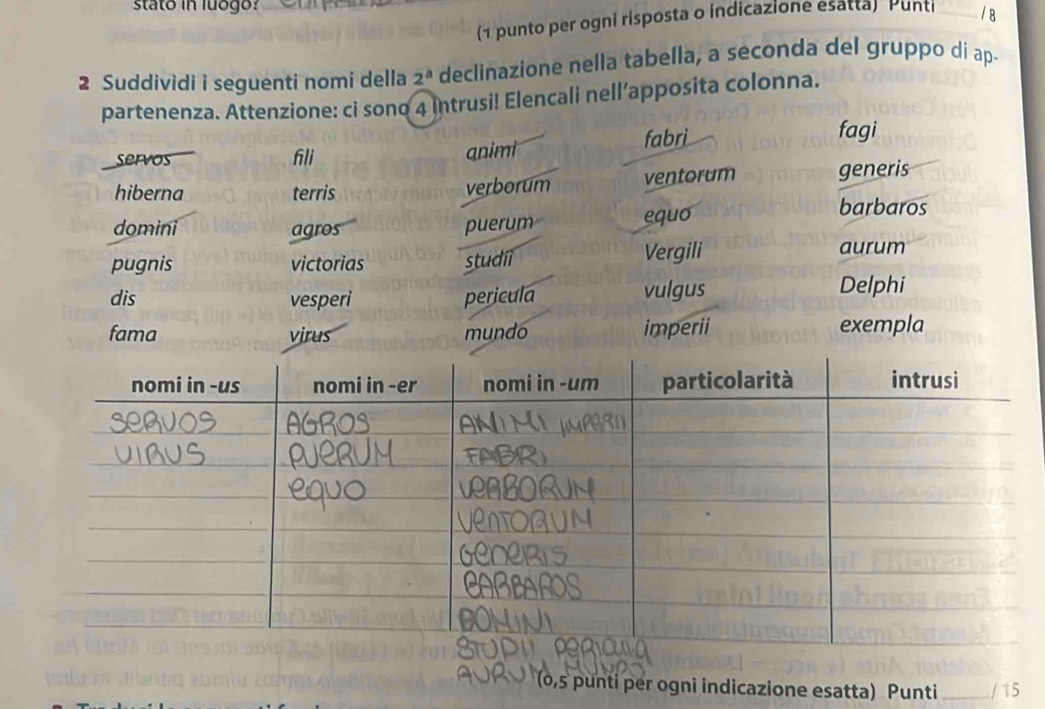 stato in luogo?
(1 punto per ogni risposta o indicazione esatta) Punti ____ / 8
2 Suddividi i seguenti nomi della 2ª declinazione nella tabella, a seconda del gruppo di ap-
partenenza. Attenzione: ci sono 4 intrusi! Elencali nell'apposita colonna.
servos filI animi fabri fagi
hiberna terris verborum ventorum generis
domini agros puerum equo barbaros
pugnis victorias studii Vergili aurum
dis vesperi pericula vulgus Delphi
fama virus mundo imperii exempla
nomi in -us nomi in -er nomi in -um particolarità intrusi
SERVOS AGROS ANIMI IMPERII
VIRUS PUERUM FABRI
EQUO VERBORUM
VENTORUM
GENERIS
BARBAROS
DOMINI
STUDII PERICULA
AURUM MUNDO
(0,5 punti per ogni indicazione esatta) Punti ____ / 15